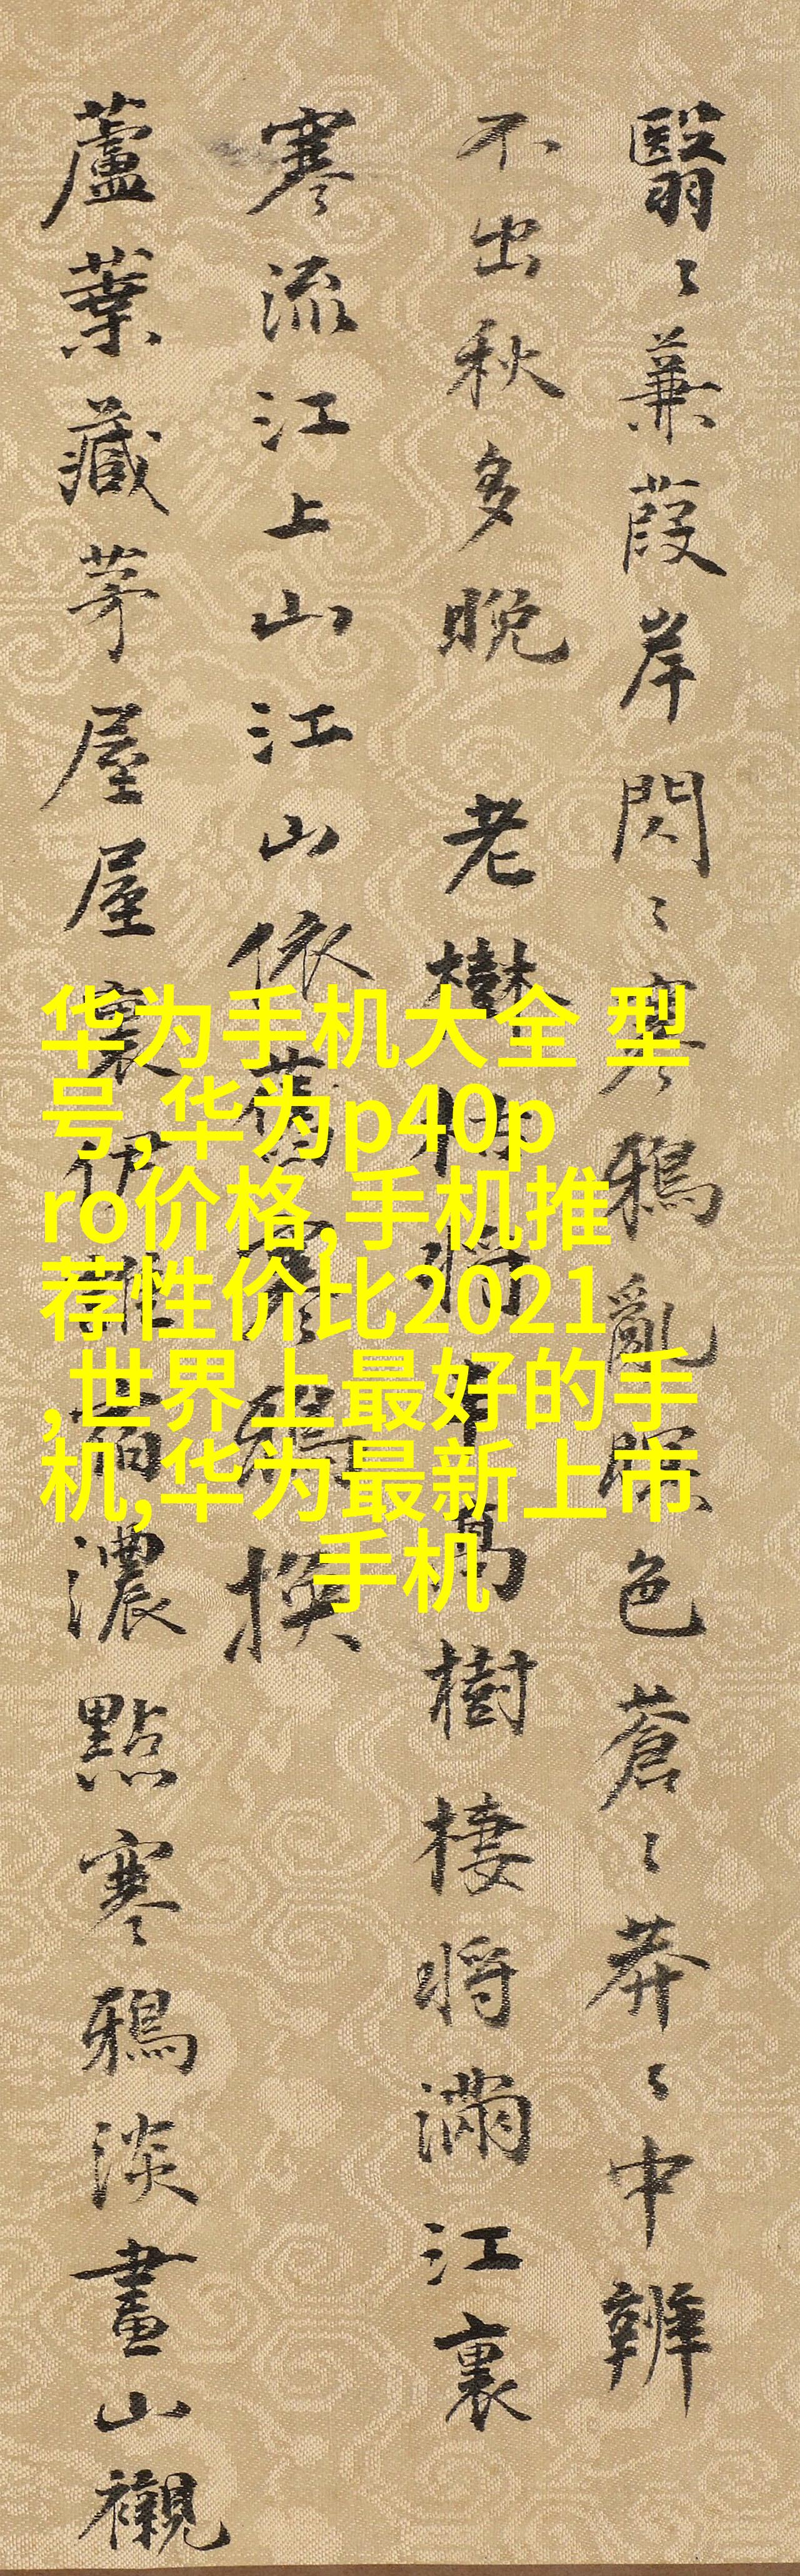 翳〻蒹葭岸閃〻寒鴉亂暝色蒼〻莽〻中辨
不出秋多晚 老樹將萬樹棲將滿江裏
寒流江上山江山依舊寒鴉換
蘆葉藏茅屋屋裏伊誰宿濃點寒鴉淡畫山襯
华为手机大全 型
号,华为p40p
ro价格,手机推
荐性价比2021
,世界上最好的手
机,华为最新上市
手机